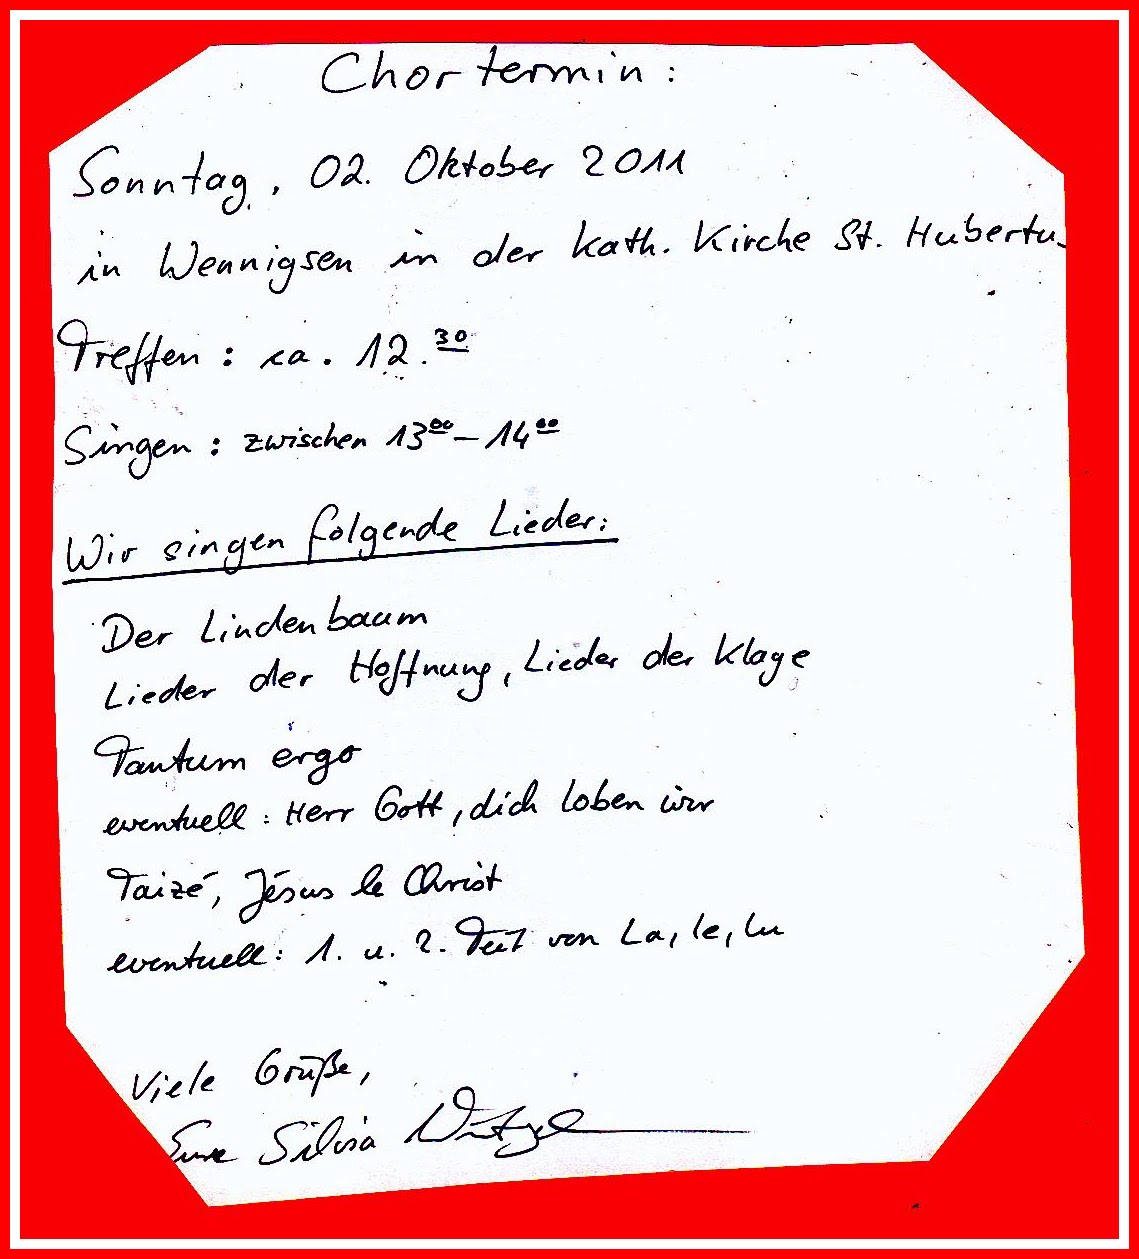 Chortermin:
Sonntag, 02. Oktober 2011
in Wennigsen in der kath. Kirche St. Hubertu
Treffen: ca. 12.30
Singen: zwischen 1300 – 1400
Wir singen folgende Lieder:
Der Lindenbaum
Lieder der Hoffnung, Lieder der Klage
Tantum ergo
eventuell: Herr Gott, dich loben wir
Taizé, Jésus le Christ
eventuell: 1. u. 2. Teil von La, le, lu
Viele Grüße,
Eure Silvia